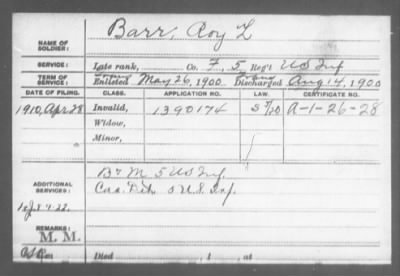 NAME OF SOLDIER: Barr, Roy L
SERVICE: Late rank, Co. F, 5 Reg't US Inf
TERM OF SERVICE: Enlisted May 26, 1900 Discharged Aug 14, 1900
DATE OF FILING. CLASS. APPLICATION NO. LAW. CERTIFICATE NO.
1910, Apr 28 Invalid, 1390174 A-1-26-28
Widow,
Minor,
ADDITIONAL SERVICES: Br M 5 US Inf
Cas. Det. 5 U.S. Inf.
REMARKS:
M. M.
Died , 1 , at